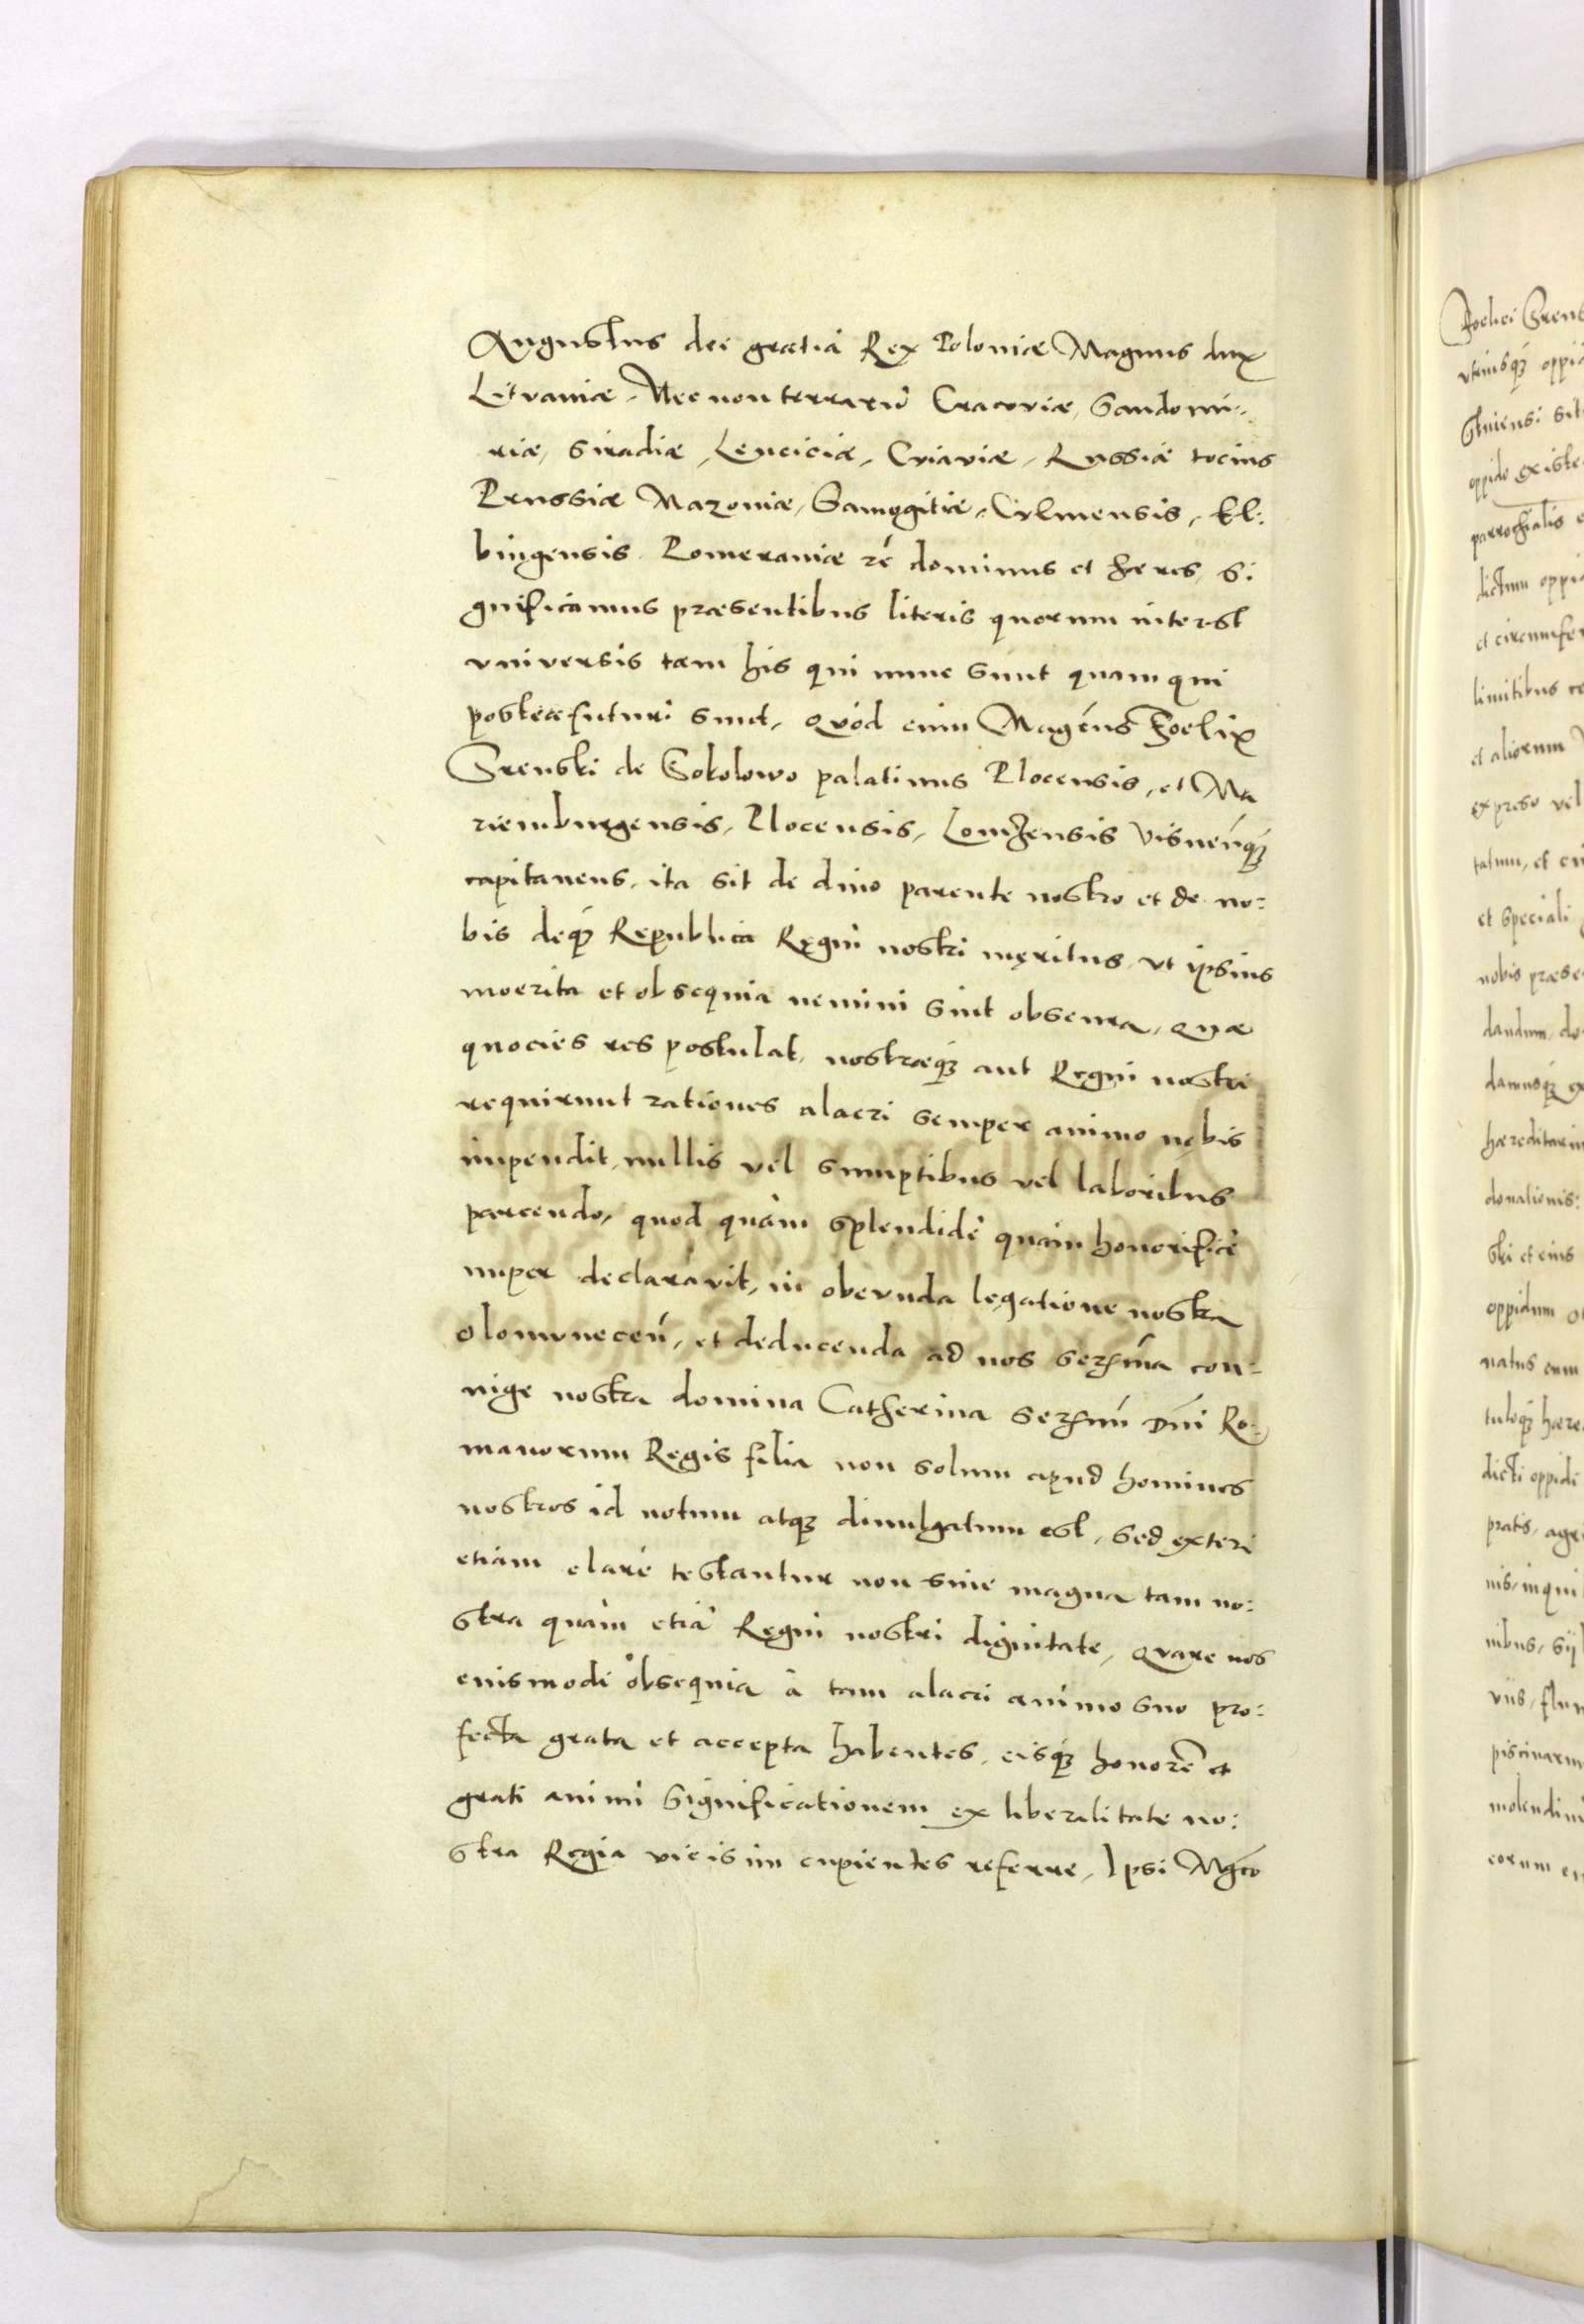 Augustus dei gratia Rex Poloniæ Magnus dux
Litvaniæ, Necnon terrarū Cracoviæ, Sandomi:
riæ, Siradiæ, Lenciciæ, Cviaviæ, Russiæ tocius
Prussiæ Mazoniæ, Samogitiæ, Cvlmensis, El:
bingensis Pomeraniæ zc̄ dominus et hæres, Si
gnificamus præsentibus literis quorum interest
vniversis tam his qui nunc sunt quam qui
posteæ futuri sunt, Qvód cum Magcus Foelix
Srenski de Sokolowo palatinus Plocensis, et Ma
riemburgensis, Plocensis, Lomzensis Visnensq3
capitaneus, ita sit de divo parente nostro et de no:
bis deq3 Republica Regni nostri meritus, vt ipsius
moerita et obsequia nemini sint obscura, Quæ
quocies res postulat, nostræq3 aut Regni nostri
requirunt rationes alacri semper animo nobis
impendit, nullis vel sumptibus vel laboribus
parcendo, quod quàm splendidè quàm honorificè
nuper declaravit, in obevnda legatione nostra
olomvnecen̄, et deducenda ad nos serma con:
iuge nostra domina Catherina sermi Dni Ro:
manorum Regis filia non solum apud homines
nostros id notum atq3 divulgatum est, sed exteri
etiam clarè testantur non sine magna tam no:
stra quàm etiā Regni nostri dignitate, Qvare nos
eiusmodi obsequia à tam alacri animo suo pro:
fecta grata et accepta habentes, eisq3 honorē et
grati animi significationem ex liberalitate no:
stra Regia vicisim cupientes referre, Ipsi Mgco
Foelici Srens
vtriusq3 oppi
oppido existe
parrochialis
dictum oppi
et circumfer
limitibus
et aliorum
expreso vel
et speciali
nobis præse
dandum, do
damusq3 ex
hæreditari
donationis:
ski et eius
oppidum
natus cum
tuloq3 hære
dicti oppidi
pratis, agr
nis, inqui
piscinarum
molendin
eorum